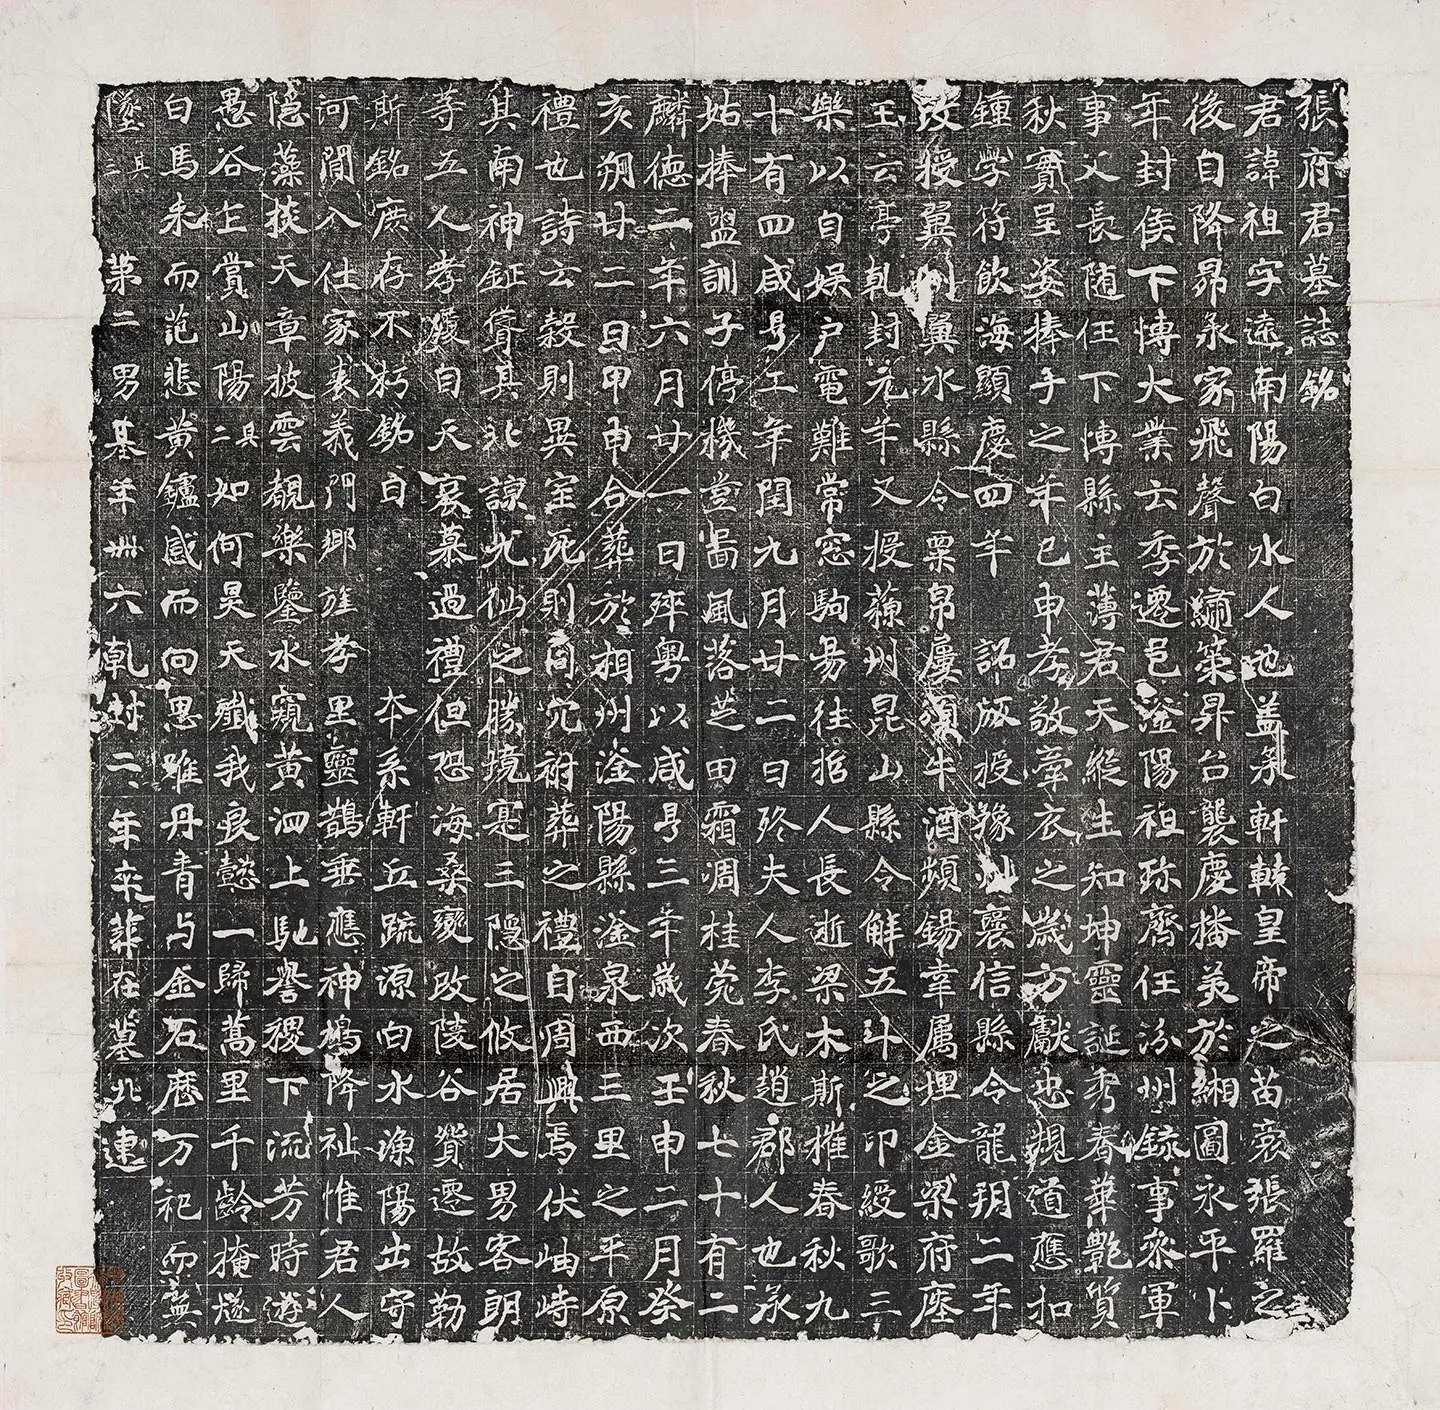 張府君墓誌銘
君諱祖字遠南陽白水人也蓋承軒轅皇帝之苗裔張羅之
後自降昴承家飛聲於繡策昇台襲慶播美於緗圖永平卜
年封侯下愽大業云季遷邑滏陽祖珎齊任汾州錄事叅軍
事父長随任下愽縣主薄君天縱生知坤靈誕秀春華艶質
秋實呈姿捧手之年已申孝敬牽衣之歲方獻忠規道應扣
鍾學符飲海顯慶四年 詔版授豫州襃信縣令龍朔二年
改授翼州翼水縣令粟帛屢頒牛酒頻錫牽属埋金梁府塵
玉云亭乹封元年又授蘇州昆山縣令解五斗之印綬歌三
樂以自娛戶電難常窓駒昜往招人長逝梁木斯摧春秋九
十有四咸亨二年閏九月廿二日終夫人李氏趙郡人也承
姑捧盥訓子停機萱啚風落芝田霜凋桂菀春秋七十有二
麟德二年六月廿一日殡粤以咸亨三年歲次壬申二月癸
亥朔廿二日甲申合葬於相州滏陽縣滏泉西三里之平原
禮也詩云穀則異室死則同穴祔葬之禮自周興焉伏岫峙
其南神鉦聳其北諒九仙之勝境寔三隠之攸居大男客朗
等五人孝履自天哀慕過禮但恐海桑變改陵谷貿遷故勒
斯銘庶存不朽銘曰 夲系軒丘疏源白水漁陽出守
河間入仕家表義門鄉旌孝里靈鵲垂應神鳩降祉惟君人
隠藻掞天章披雲覩樂鑒水窺黄泗上馳譽稷下流芳時遊
愚谷乍賞山陽其二如何昊天殱我良懿一歸蒿里千齡掩燧
白馬来而蒞悲黄鑪感而向思雖丹青与金石歷万祀而無
墜其三 第二男基年卅六乹封二年卒葬在墓北連